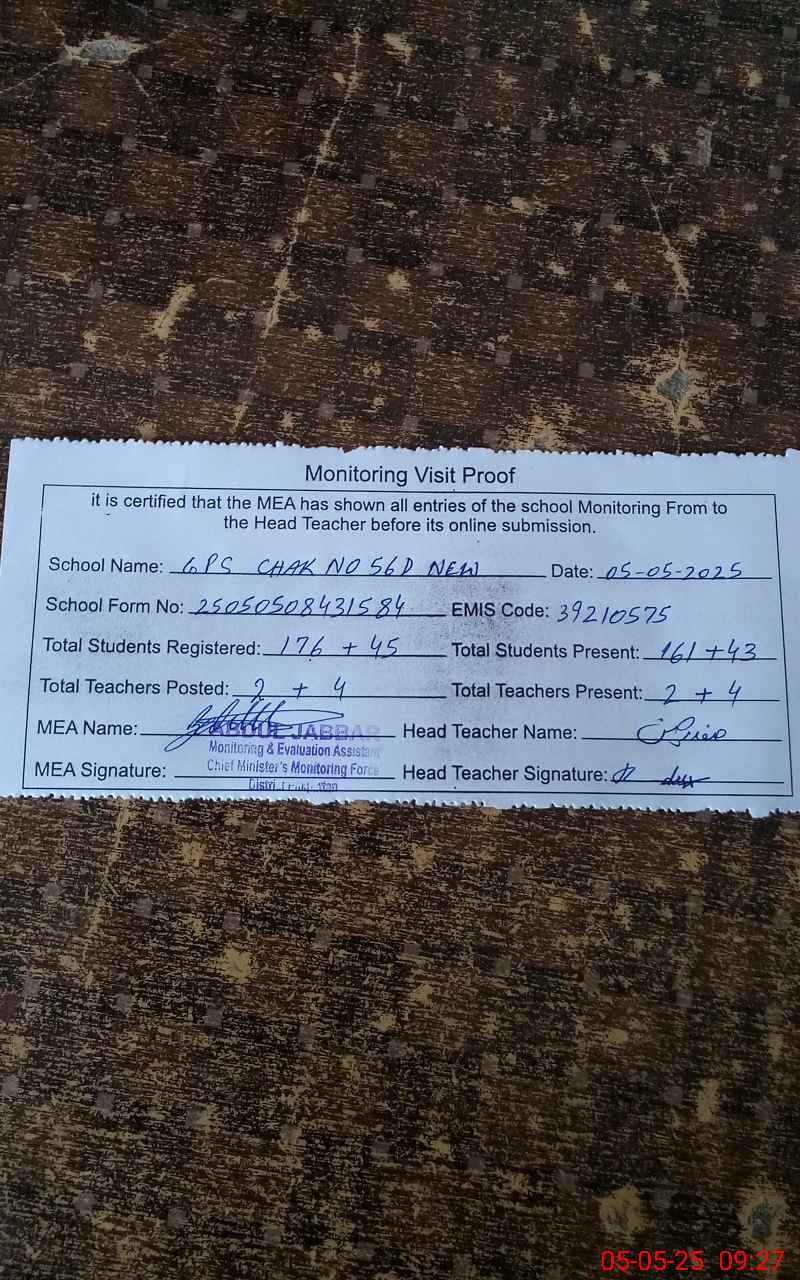 Monitoring Visit Proof
it is certified that the MEA has shown all entries of the school Monitoring From to
the Head Teacher before its online submission.
School Name: GPS CHAK NO 56D NEW Date: 05-05-2025
School Form No: 25050508431584 EMIS Code: 39210575
Total Students Registered: 176 + 45 Total Students Present: 161 + 43
Total Teachers Posted: 2 + 4 Total Teachers Present: 2 + 4
MEA Name: ABDUL JABBAR Head Teacher Name:
Monitoring & Evaluation Assistant
MEA Signature: Chief Minister's Monitoring Force Head Teacher Signature:
05-05-25 09:27